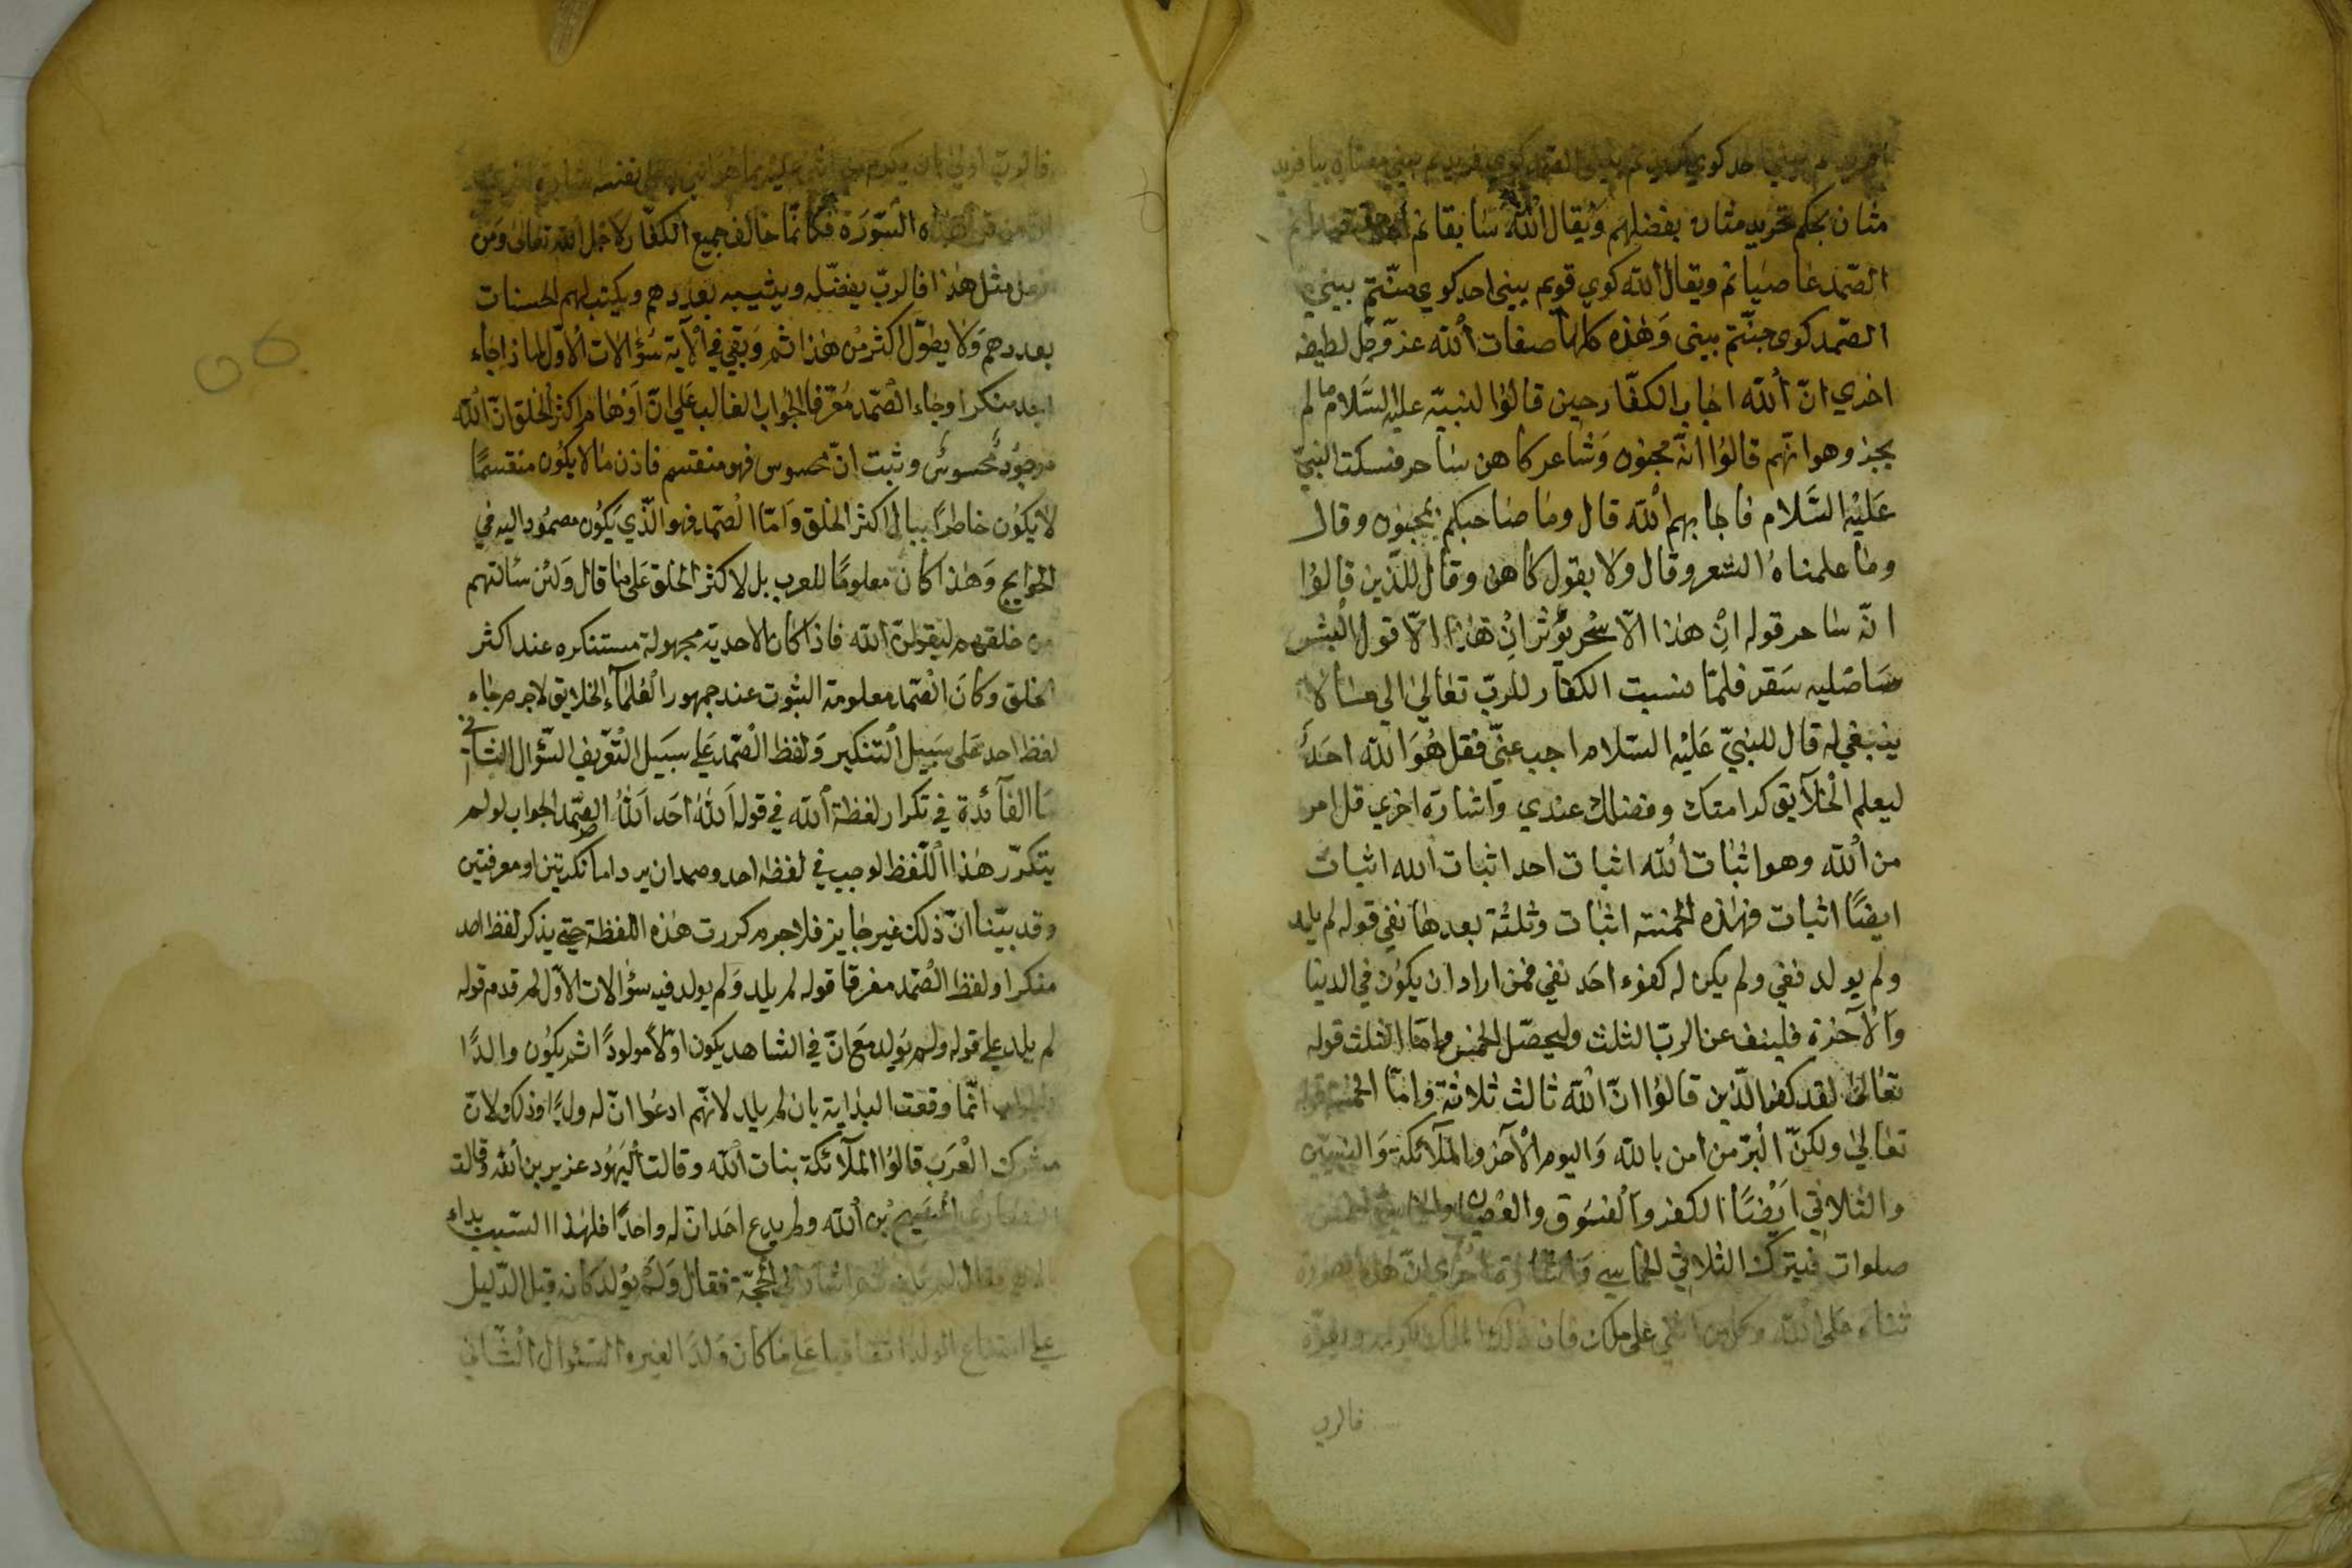 احد كوي
مثان بحكم تحريد مثان بفضلهم ويقال الله سابقانم
الصمد عاصيانم ويقال الله كوي قويم بيني احد كوي منتم بيني
الصمد كوى جنتم بينى وهذه كلها صفات الله عز وجل لطيفه
اخري ان الله اجاب الكفار حين قالوا لنبيه عليه السلام ما لم
يجز وهو انهم قالوا انه مجنون وشاعر كاهن ساحر فسكت النبي
عليه السلام فاجابهم الله قال وما صاحبكم بمجنون وقال
وما علمناه الشعر وقال ولا بقول كاهن وقال للذين قالوا
انه ساحر قوله ان هذا الا سحر يؤثر ان هذا الا قول البشر
ساصليه سقر فلما نسبت الكفار للرب تعالى الي مسا لا
ينبغي له قال للنبي عليه السلام اجب عني فقل هو الله احد
ليعلم الخلايق كرامتك وفضلك عندي واشارة اخري قل امر
من الله وهو اثبات الله اثبات احد اثبات الله اثبات
ايضا اثبات فهذه الخمسة اثبات وثلثة بعدها نفي قوله لم يلد
ولم يولد نفي ولم يكن له كفوء احد نفي فمن اراد ان يكون في الدنيا
والآخرة فلينف عن الرب الثلث وليحصل الخمس واما الثلث قوله
تعالى لقد كفر الذين قالوا ان الله ثالث ثلاثة واما الخمسة قوله
تعالي ولكن البر من امن بالله واليوم الآخر والملآئكة والنبيين
والثلاثي ايضا الكفر والفسوق والعصيان والخماسي الخمس
صلوات فيترك الثلاثي الخماسي واشارة اخري ان هذه السورة
ثناء على الله وكل من اثني على ملك فان ذلك الملك يكرمه ويعزه
فالرب
فالرب اولى بان يكرم من اثنى عليه بما هو اثنى به على نفسه
ان من قرأ هذه السورة فكانما خالف جميع الكفار لاجل الله تعالى ومن
فعل مثل هذا فالرب يفضله ويثيبه بعددهم ويكتب لهم الحسنات
بعددهم ولا يطول اكثر من هذا ثم وبقي في الآية سؤالات الاول لماذا جاء
احد منكرا وجاء الصمد معرفا الجواب الغالب على ان اوهام اكثر الخلق ان الله
موجود محسوس وثبت ان محسوس فهو منقسم فاذن ما لا يكون منقسما
لا يكون خاطرا ببال اكثر الخلق واما الصمد فهو الذي يكون مصمود اليه في
الحوايج وهذا كان معلوما للعرب بل لاكثر الخلق على ما قال ولئن سالتهم
من خلقهم ليقولن الله فاذا كان الاحدية مجهولة مستنكره عند اكثر
الخلق وكان الصمد معلومة الثبوت عند جمهور العلمآء الخلايق لا جرم جاء
لفظ احد على سبيل التنكير ولفظ الصمد علي سبيل التعريف السؤال الثاني
ما الفآئدة في تكرار لفظة الله في قوله الله احد الله الصمد الجواب لو لم
يتكرر هذا اللفظ لوجب في لفظه احد وصمد ان يرد اما نكرتين او معرفتين
وقد بينا ان ذلك غير جايز فلا جرم كررت هذه اللفظة حتي يذكر لفظ احد
منكرا ولفظ الصمد معرفا قوله لم يلد ولم يولد فيه سؤالات الاول لم قدم قوله
لم يلد علي قوله ولم يولد مع ان في الشاهد يكون اولا مولودا ثم يكون والدا
الجواب انما وقعت البداية بان لم يلد لانهم ادعوا ان له ولدا وذلك لان
مشركي العرب قالوا الملآئكة بنات الله وقالت اليهود عزير بن الله وقالت
النصارى المسيح بن الله ولم يدع احد ان له واحدا فلهذا السبب بداء
بالاهم فقال لم يلد ثم اشار الي الحجة فقال ولم يولد كانه قيل الدليل
علي امتناع الولد اتفاقنا علي ما كان ولدا لغيره السئوال الثاني